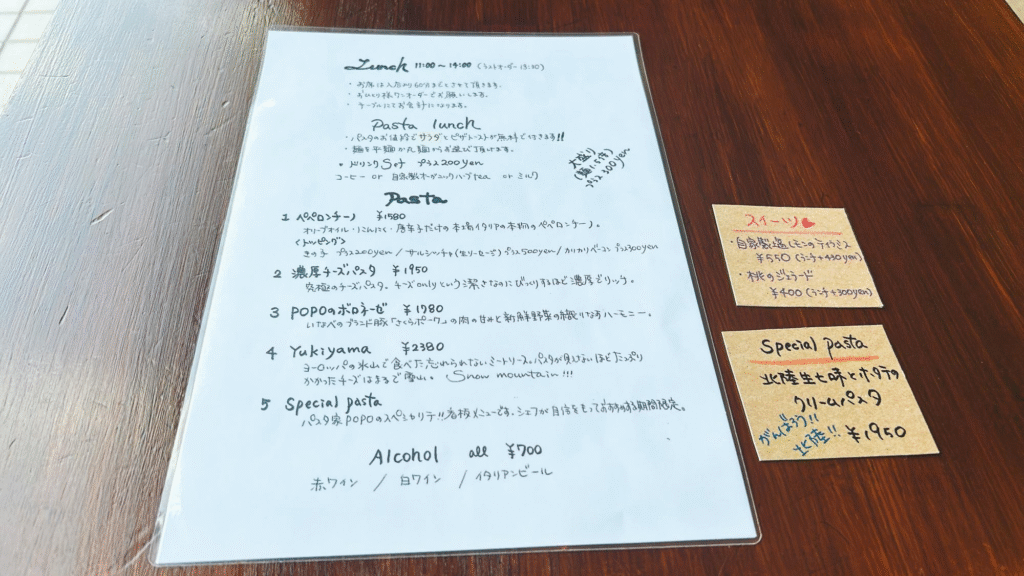 Lunch 11:00～14:00 (ラストオーダー 13:30)
・お席は入店から60分までとさせて頂きます。
・おひとり様ワンオーダーでお願いします。
・テーブルにてお会計になります。
Pasta lunch
・パスタのお値段でサラダとピザトーストが無料で付きます!!
・麺を平麺か丸麺からお選び頂けます。
・ドリンクSet プラス200yen
コーヒー or 自家製オーガニックハーブtea or ミルク
大盛り
(麺1.5倍)
プラス300yen
Pasta
1 ペペロンチーノ ¥1580
オリーブオイル・にんにく・唐辛子だけの本場イタリアの本物のペペロンチーノ。
〈トッピング〉
きのこ プラス200yen / サルシッチャ(生ソーセージ) プラス500yen / カリカリベーコン プラス300yen
2 濃厚チーズパスタ ¥1950
究極のチーズパスタ。チーズonlyという潔さなのにびっくりするほど濃厚でリッチ。
3 POPOのボロネーゼ ¥1780
いなべのブランド豚「さくらポーク」の肉の甘みと新鮮野菜の織りなすハーモニー。
4 Yukiyama ¥2380
ヨーロッパの氷山で食べた忘れられないミートソース。パスタが見えないほどたっぷり
かかったチーズはまるで雪山。 Snow mountain!!!
5 Special pasta
パスタ家POPOのスペシャリテ!!看板メニューです。シェフが自信をもってお勧めする期間限定。
Alcohol all ¥700
赤ワイン / 白ワイン / イタリアンビール
スイーツ♥
・自家製塩レモンのティラミス
¥550 (ランチ+430yen)
・桃のジェラード
¥400 (ランチ+300yen)
Special pasta
北陸生七味とホタテの
クリームパスタ
がんばろう!!
北陸!!
¥1950